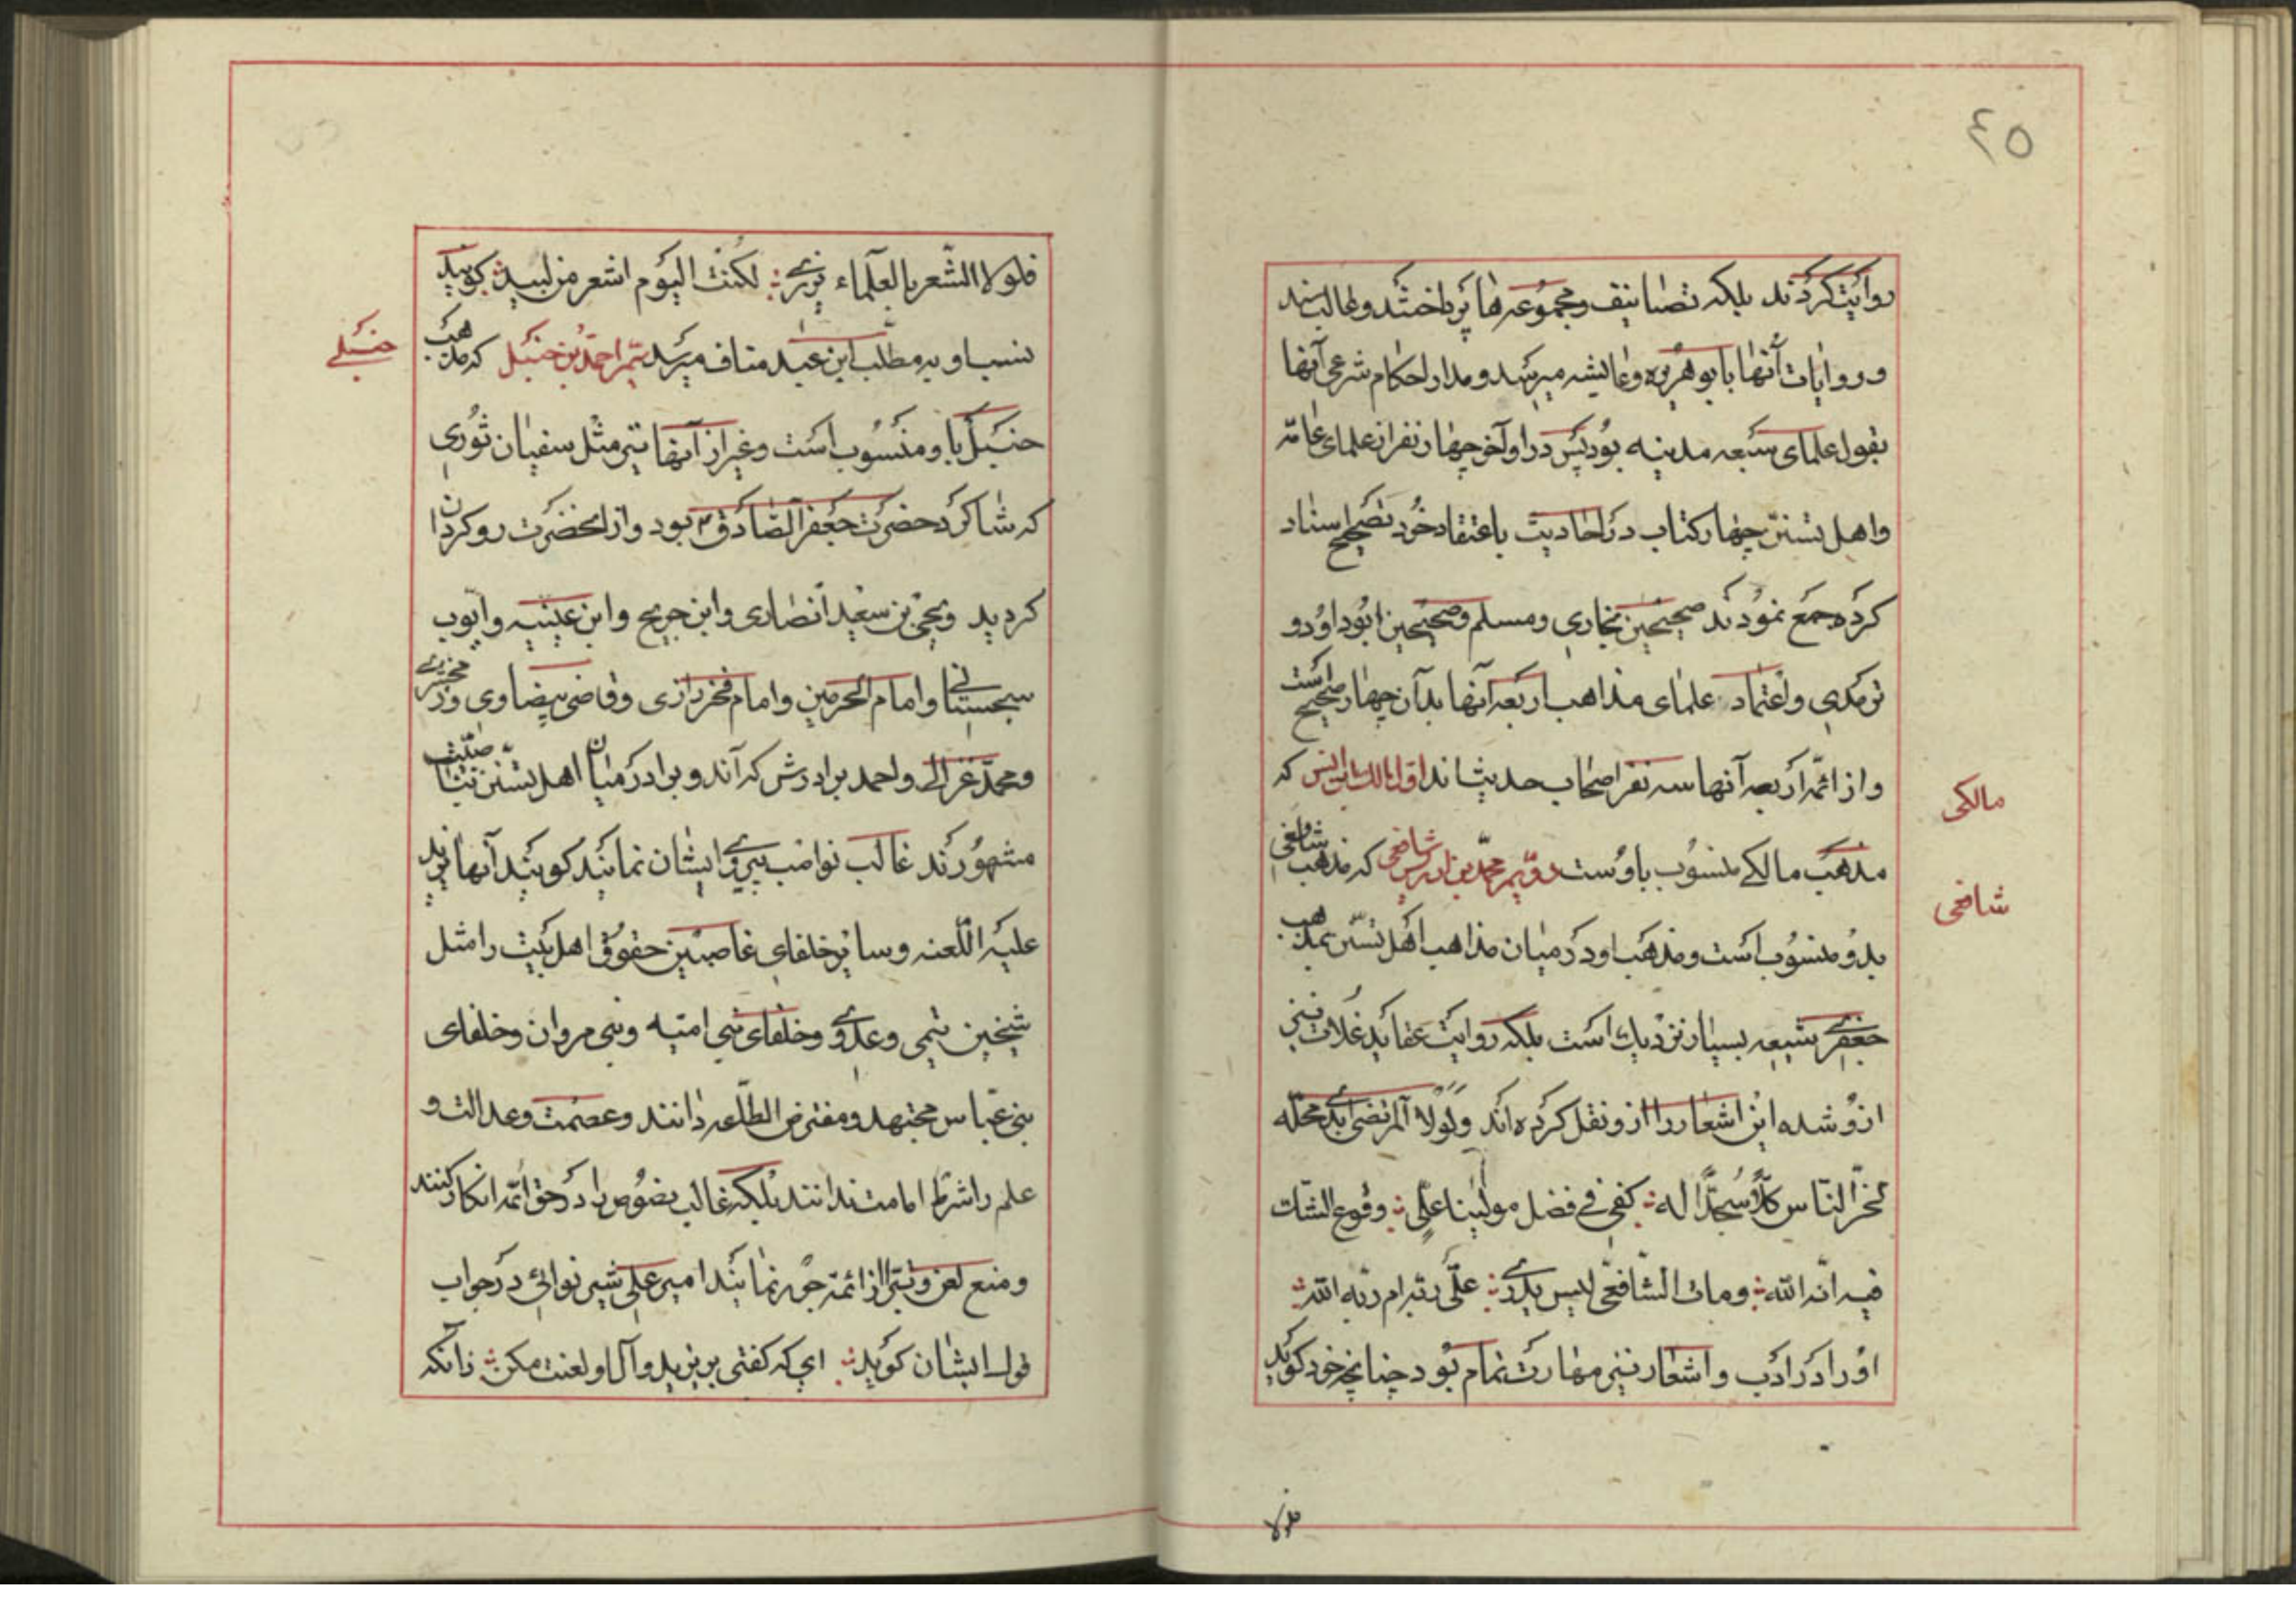 ٤٥
روایت کردند بلکه تصانیف ومجموعه ها پرداختند وغالب سند
و روایات آنها بابوهریره وعایشه میرسد و مدار احکام شرعی آنها
بقول علمای سبعه مدینه بود پس در اواخر چهار نفر از علمای عامّه
واهل تسنّن چهار کتاب در احادیث باعتقاد خود تصحیح اسناد
کرده جمع نمودند صحیحین بخاری ومسلم وصحیحین ابوداود و
ترمدی واعتماد علمای مذاهب اربعه آنها بدآن چهار صحیح است
واز ائمّه اربعه آنها سه نفر اصحاب حدیث اند اوّل مالک بن انس که
مالکی
مذهب مالکے منسوب باوست دوّیم محمّد بن ادریس شافعی که مذهب شافعی
شافعی
بدو منسوب است ومذهب او در میان مذاهب اهل تسنّن بمذهب
جعفرے شیعه بسیار نزدیك است بلکه روایت عقاید غلات نیز
ازو شده این اشعار را ازو نقل کرده اند ولولا المرتضی ابدی محلّه
لخرّ النّاس کلّاً سُجّداً له کفی فی فضل مولینا علّی وقوع الشّك
فیه انّه الله ومات الشّافعّی لیس یدرے علّی ربّه ام ربّه الله
او را در ادب واشعار نیز مهارت تمام بود چنانچه خود گوید
فلولا
فلولا الشّعر بالعلماء یزرے لکنت الیوم اشعر من لبید گویند
نسب او به مطّلب ابن عبد مناف میرسد سیّم احمد بن حنبل که مذهب
حنبلے
حنبل باو منسوب است وغیر از آنها نیز مثل سفیان ثوری
که شاکرد حضرت جعفر الصّادق بود واز آنحضرت روکردان
کردید ویحیی بن سعید انصاری وابن جریح وابن عیینه وایّوب
سجستانی وامام الحرمین وامام فخر رازی وقاضی بیضاوی و زمخشرے
ومحمّد غزالے واحمد برادرش که آندو برادر در میان اهل تسنّن
مشهورند غالب نواصب پیروے ایشان نمایند کویند آنها یزید
علیه اللّعنه وسایر خلفای غاصبین حقوق اهل بیت را مثل
شیخین تیمی وعدوے وخلفای بنی امیّه وبنی مروان وخلفای
بنی عبّاس مجتهد ومفترض الطّاعه دانند وعصمت وعدالت و
علم را شرط امامت ندانند بلکه غالب نصوص را در حقّ ائمّه انکار کنند
ومنع لعن وتبرّا از ائمّه جور نمایند امیر علی شیر نوائی در جواب
قول ایشان کوید ای که کفتی بر یزید وآل او لعنت مکن زآنکه